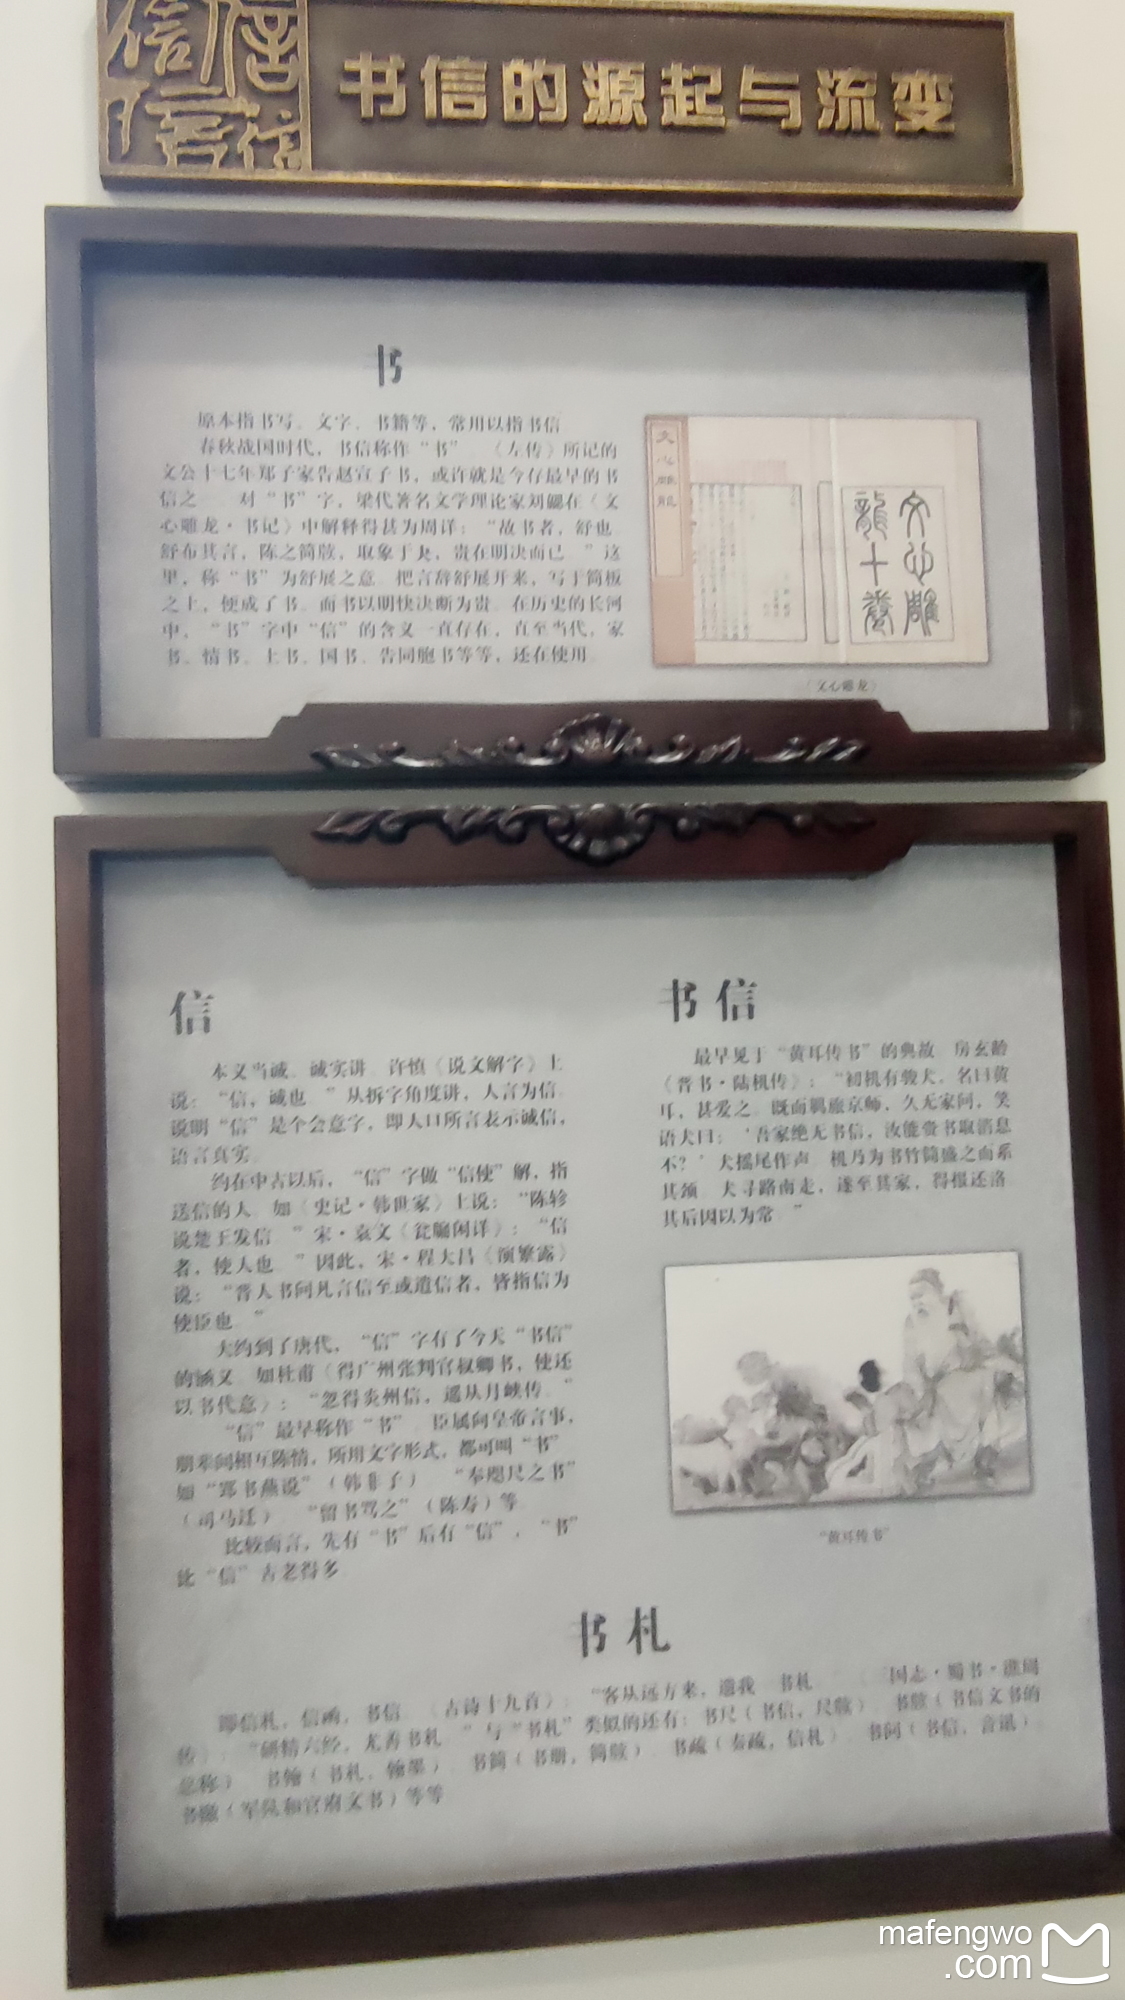 书信的源起与流变
书
原本指书写、文字、书籍等，常用以指书信。
春秋战国时代，书信称作“书”。《左传》所记的
文公十七年郑子家告赵宣子书，或许就是今存最早的书
信之一。对“书”字，梁代著名文学理论家刘勰在《文
心雕龙·书记》中解释得甚为周详：“故书者，舒也。
舒布其言，陈之简牍，取象于夬，贵在明决而已。”这
里，称“书”为舒展之意。把言辞舒展开来，写于简板
之上，便成了书。而书以明快决断为贵。在历史的长河
中，“书”字中“信”的含义一直存在，直至当代，家
书、情书、上书、国书、告同胞书等等，还在使用。
文心雕龍
文心雕
龍十卷
《文心雕龙》
信
本义当诚、诚实讲。许慎《说文解字》上
说：“信，诚也。”从拆字角度讲，人言为信。
说明“信”是个会意字，即人口所言表示诚信，
语言真实。
约在中古以后，“信”字做“信使”解，指
送信的人。如《史记·韩世家》上说：“陈轸
说楚王发信。”宋·袁文《瓮牖闲评》：“信
者，使人也。”因此，宋·程大昌《演繁露》
说：“晋人书问凡言信至或遣信者，皆指信为
使臣也。”
大约到了唐代，“信”字有了今天“书信”
的涵义。如杜甫《得广州张判官叔卿书，使还
以书代意》：“忽得炎州信，遥从月峡传。”
“信”最早称作“书”。臣属向皇帝言事，
朋辈间相互陈情，所用文字形式，都可叫“书”。
如“郢书燕说”（韩非子）、“奉咫尺之书”
（司马迁）、“留书骂之”（陈寿）等。
比较而言，先有“书”后有“信”，“书”
比“信”古老得多。
书信
最早见于“黄耳传书”的典故。房玄龄
《晋书·陆机传》：“初机有骏犬，名曰黄
耳，甚爱之。既而羁旅京师，久无家问，笑
语犬曰：‘吾家绝无书信，汝能赍书取消息
不？’犬摇尾作声。机乃为书竹筒盛之而系
其颈。犬寻路南走，遂至其家，得报还洛。
其后因以为常。”
“黄耳传书”
书札
即信札，信函，书信。《古诗十九首》：“客从远方来，遗我一书札。”《三国志·蜀书·谯周
传》：“研精六经，尤善书札。”与“书札”类似的还有：书尺（书信，尺牍）、书牍（书信文书的
总称）、书翰（书札，翰墨）、书简（书册，简牍）、书疏（奏疏，信札）、书问（书信，音讯）、
书檄（军队和官府文书）等等。
mafengwo
.com